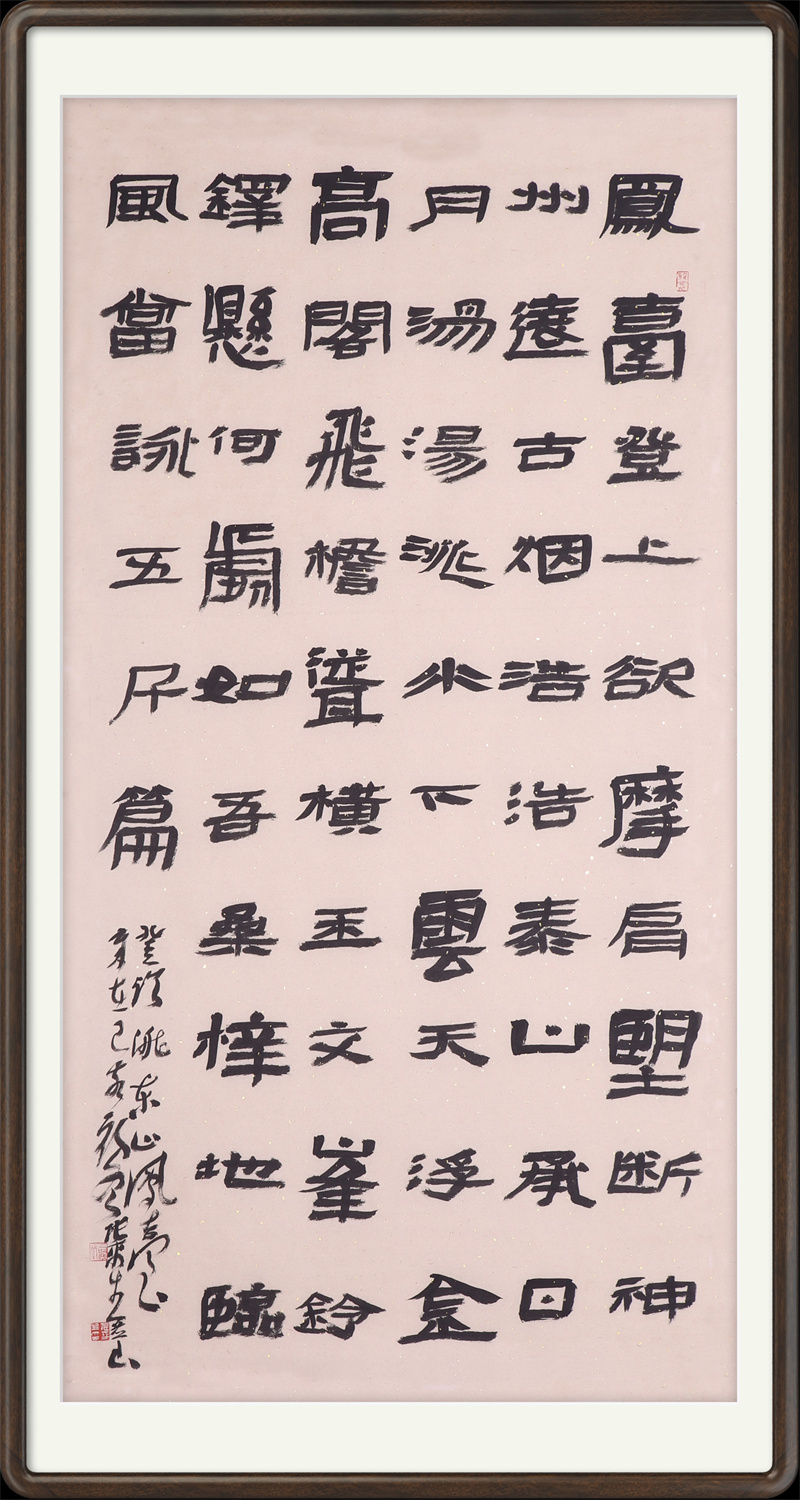 鳳臺登上欲摩肩望斷神
州遠古烟浩浩泰山承日
月湯湯洮水下雲天浮金
高閣飛檐聳橫玉文峯鈴
鐸懸何處如吾桑梓地臨
風當詠五斤篇
登臨洮東山鳳臺